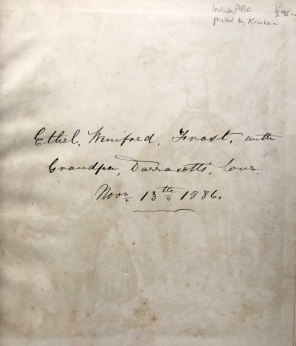 Includes ABC
printed by Kronheim
£95-
Ethel, Winifred, Frost, with
Grandpa, Darracotts', Love.
Novr 13th 1886.